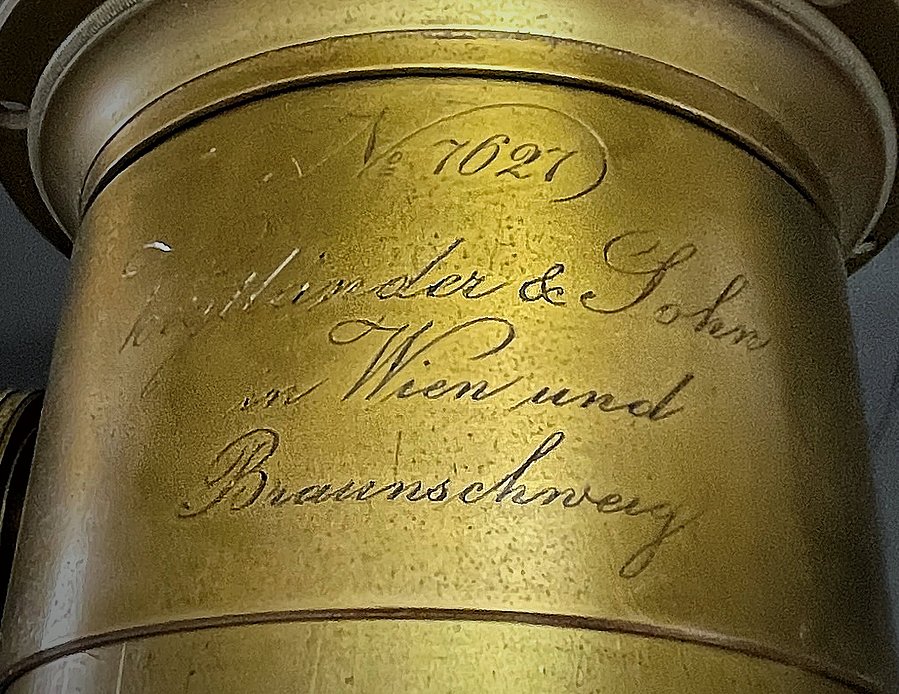 No 7627
Voigtländer & Sohn
in Wien und
Braunschweig